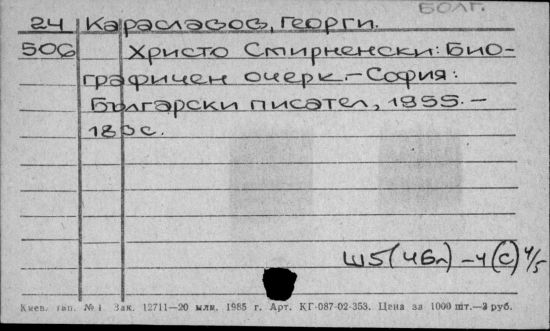 БОЛГ.
24 Караславов, Георги.
506 Христо Смирненски: Био-
графичен очерк.-София:
Български писател, 1955.-
183с.
Ш5(4Бл)-4(С) 4/5
Киев. тип. № 1 Зак. 12711—20 млн. 1985 г. Арт. КГ-087-02-353. Цена за 1000 шт.—3 руб.